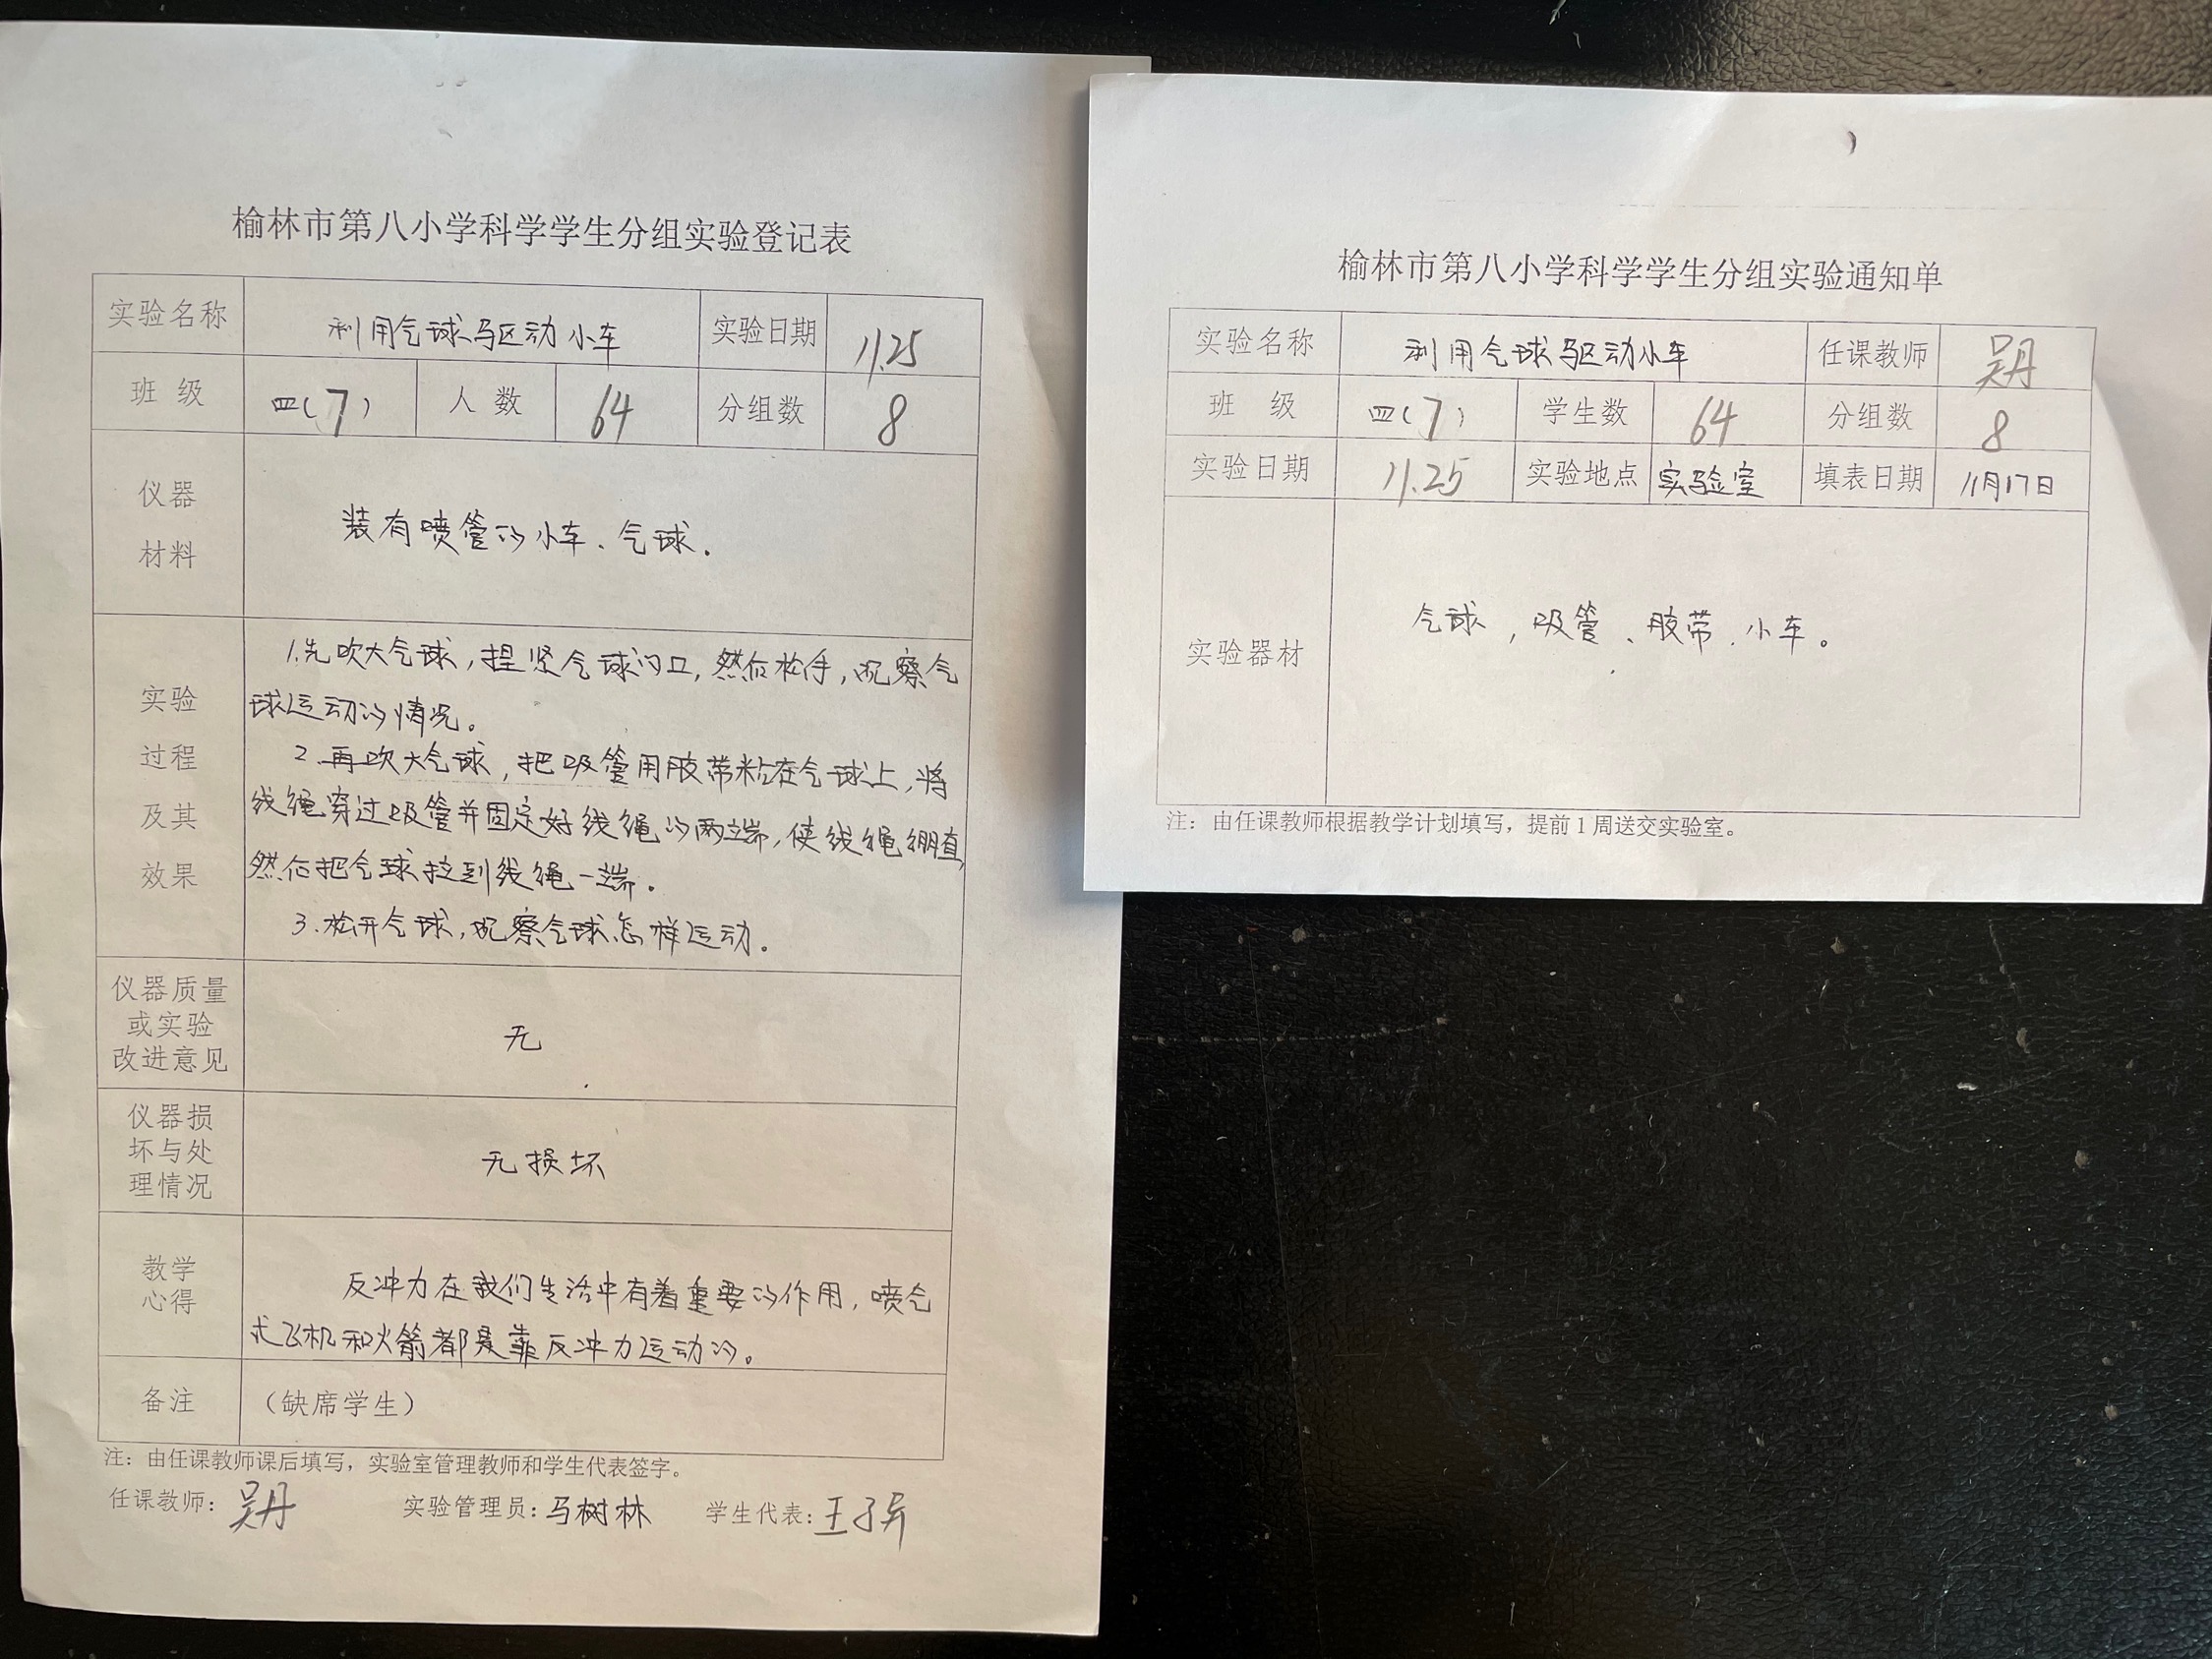 榆林市第八小学科学学生分组实验登记表
实验名称 利用气球驱动小车 实验日期 11.25
班 级 四(7) 人 数 64 分组数 8
仪器
材料
装有喷管的小车、气球.
实验
过程
及其
效果
1.先吹大气球,捏紧气球门口,然后松手,观察气
球运动的情况。
2.再吹大气球,把吸管用胶带粘在气球上,将
线绳穿过吸管并固定好线绳的两端,使线绳绷直,
然后把气球拉到线绳一端。
3.松开气球,观察气球怎样运动。
仪器质量
或实验
改进意见
无
仪器损
坏与处
理情况
无损坏
教学
心得
反冲力在我们生活中有着重要的作用,喷气
式飞机和火箭都是靠反冲力运动的。
备注 (缺席学生)
注:由任课教师课后填写,实验室管理教师和学生代表签字。
任课教师:吴丹 实验管理员:马树林 学生代表:王子异
榆林市第八小学科学学生分组实验通知单
实验名称 利用气球驱动小车 任课教师 吴丹
班 级 四(7) 学生数 64 分组数 8
实验日期 11.25 实验地点 实验室 填表日期 11月17日
实验器材 气球,吸管、胶带、小车。
注:由任课教师根据教学计划填写,提前1周送交实验室。